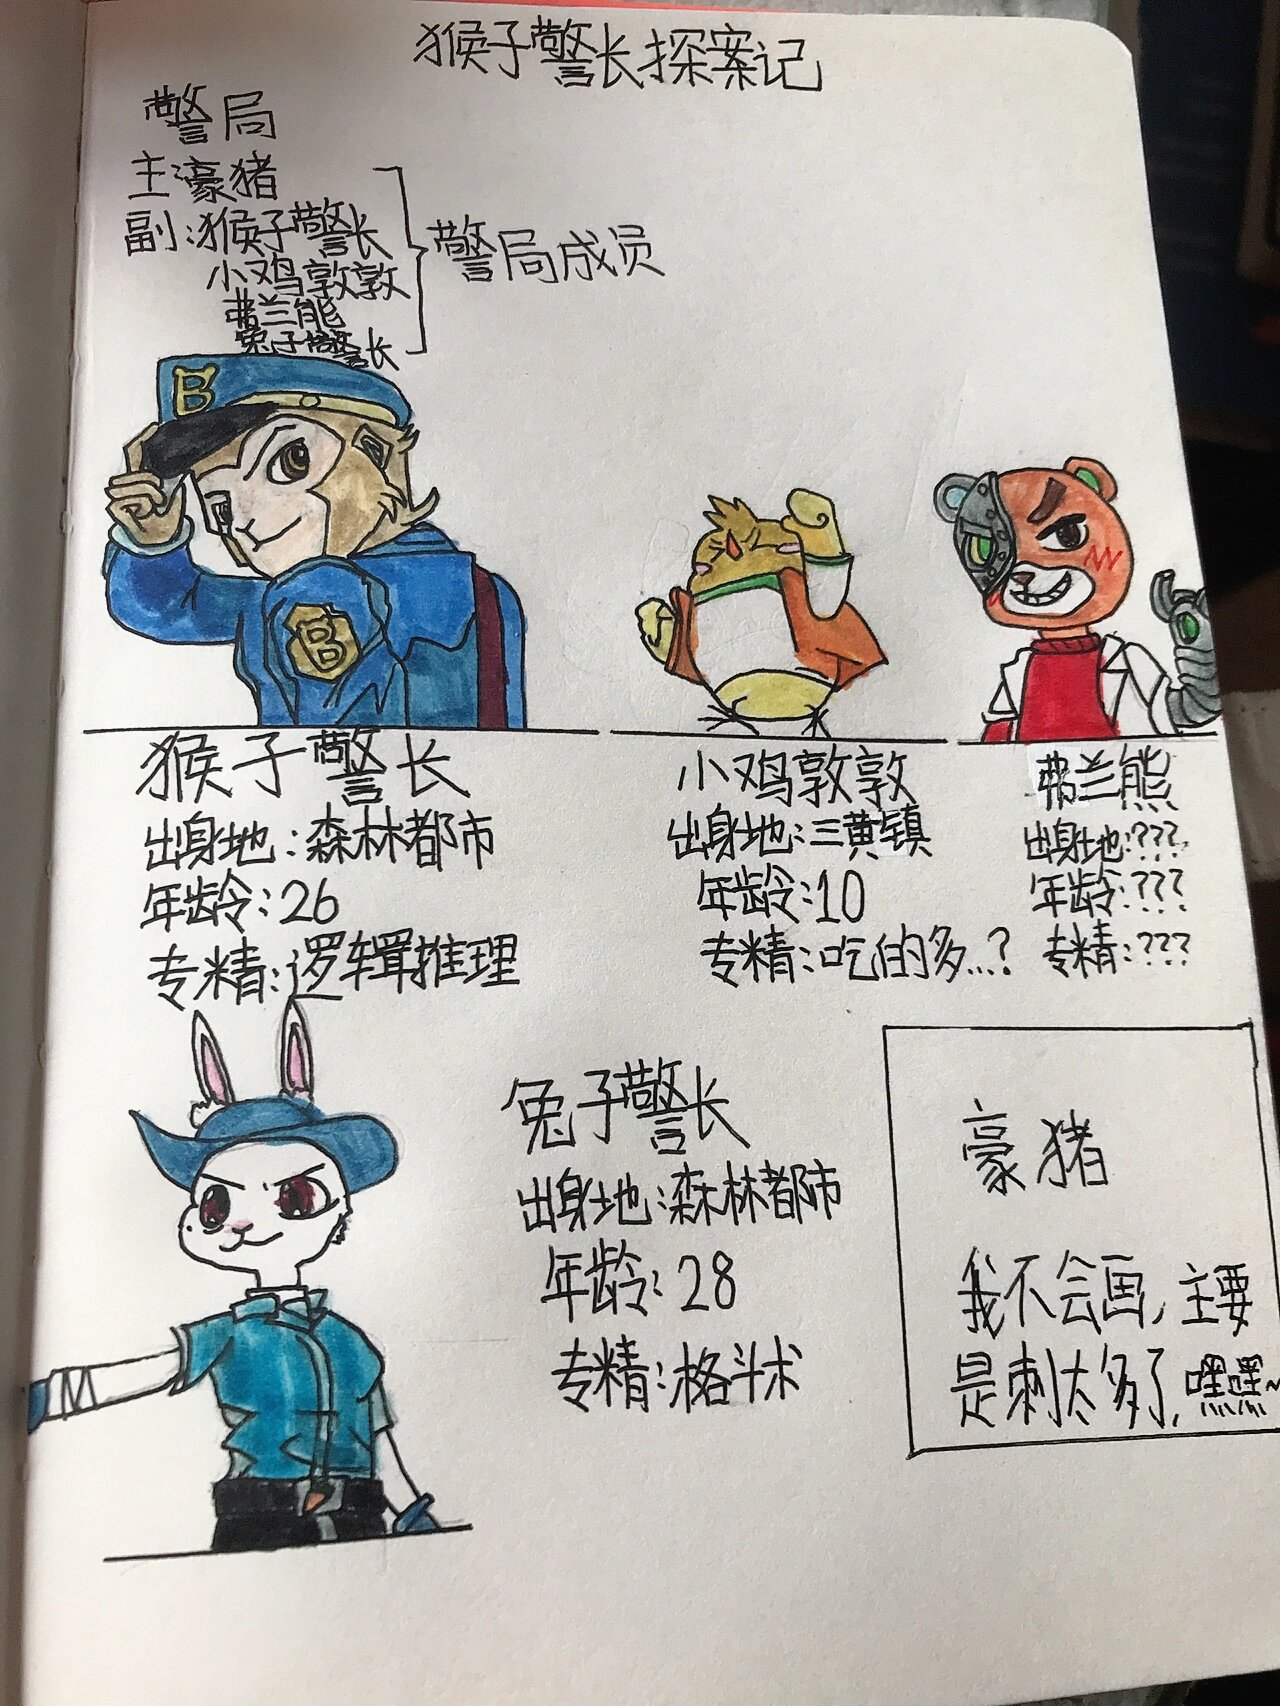 猴子警长探案记
警局
主:濠猪
副:猴子警长
小鸡敦敦
弗兰能
兔子警长
警局成员
B
B
猴子警长
出身地:森林都市
年龄:26
专精:逻辑推理
小鸡敦敦
出身地:三黄镇
年龄:10
专精:吃的多...?
弗兰熊
出身地:???
年龄:???
专精:???
兔子警长
出身地:森林都市
年龄:28
专精:格斗术
豪猪
我不会画,主要
是刺太多了,嘿嘿~